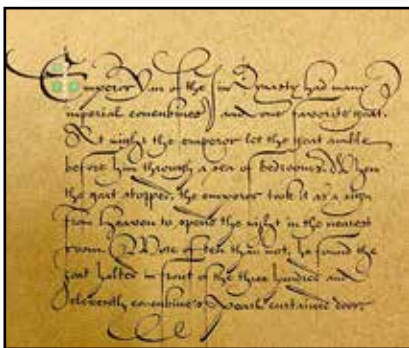 Emperor Van of the Jin Dynasty had many
imperial concubines and one favorite goat.
At night the emperor let the goat amble
before him through a sea of bedrooms. When
the goat stopped, the emperor took it as a sign
from heaven to spend the night in the nearest
room. More often than not, he found the
goat halted in front of the three hundred and
eleventh concubine's curtained door.